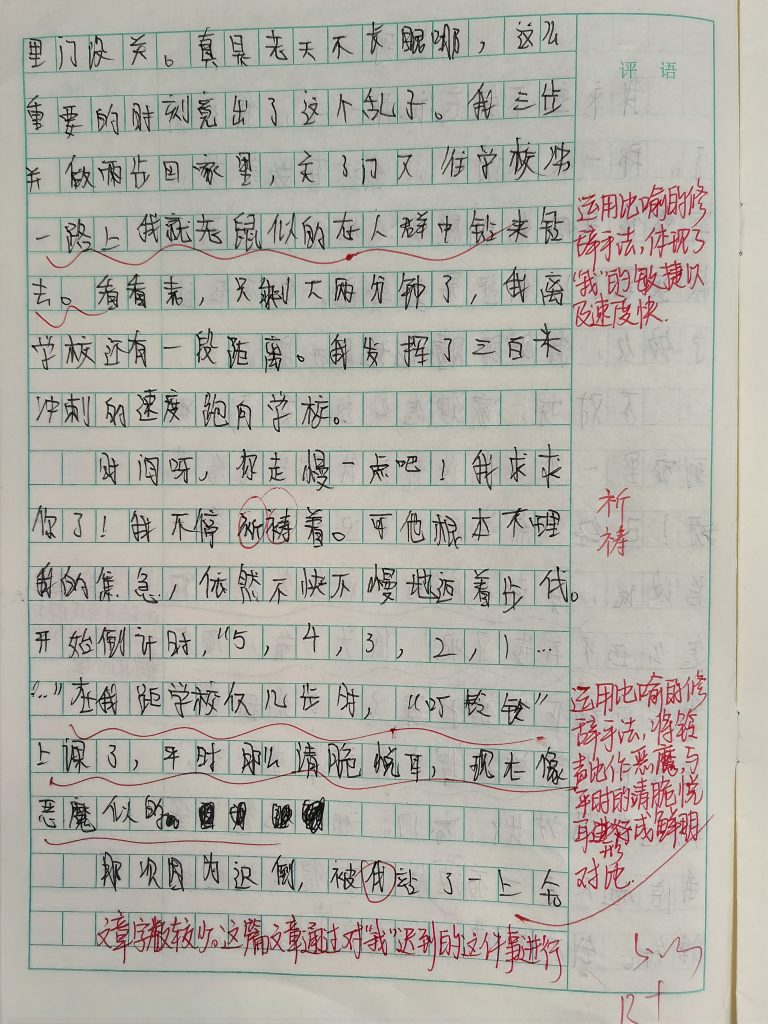 里门没关。真是老天不长眼哪，这么
重要的时刻竟出了这个乱子。我三步
并做两步回家里，关了门又往学校冲
一路上我就老鼠似的在人群中钻来钻
去。看看表，只剩大两分钟了，我离
学校还有一段距离。我发挥了三百米
冲刺的速度跑向学校。
时间呀，你走慢一点吧！我求求
你了！我不停祈祷着。可他根本不理
我的焦急，依然不快不慢地迈着步伐。
开始倒计时，“5，4，3，2，1…
在我距学校仅几步时，“叮铃铃”
上课了，平时那么清脆悦耳，现在像
恶魔似的。
那次因为迟倒，被我站了一上午
评语
运用比喻的修
辞手法，体现了
“我”的敏捷以
及速度快.
祈
祷
运用比喻的修
辞手法，将铃
声比作恶魔，与
平时的清脆悦
耳进行形成鲜明
对比.
文章字数较少。这篇文章通过对“我”迟到的这件事进行